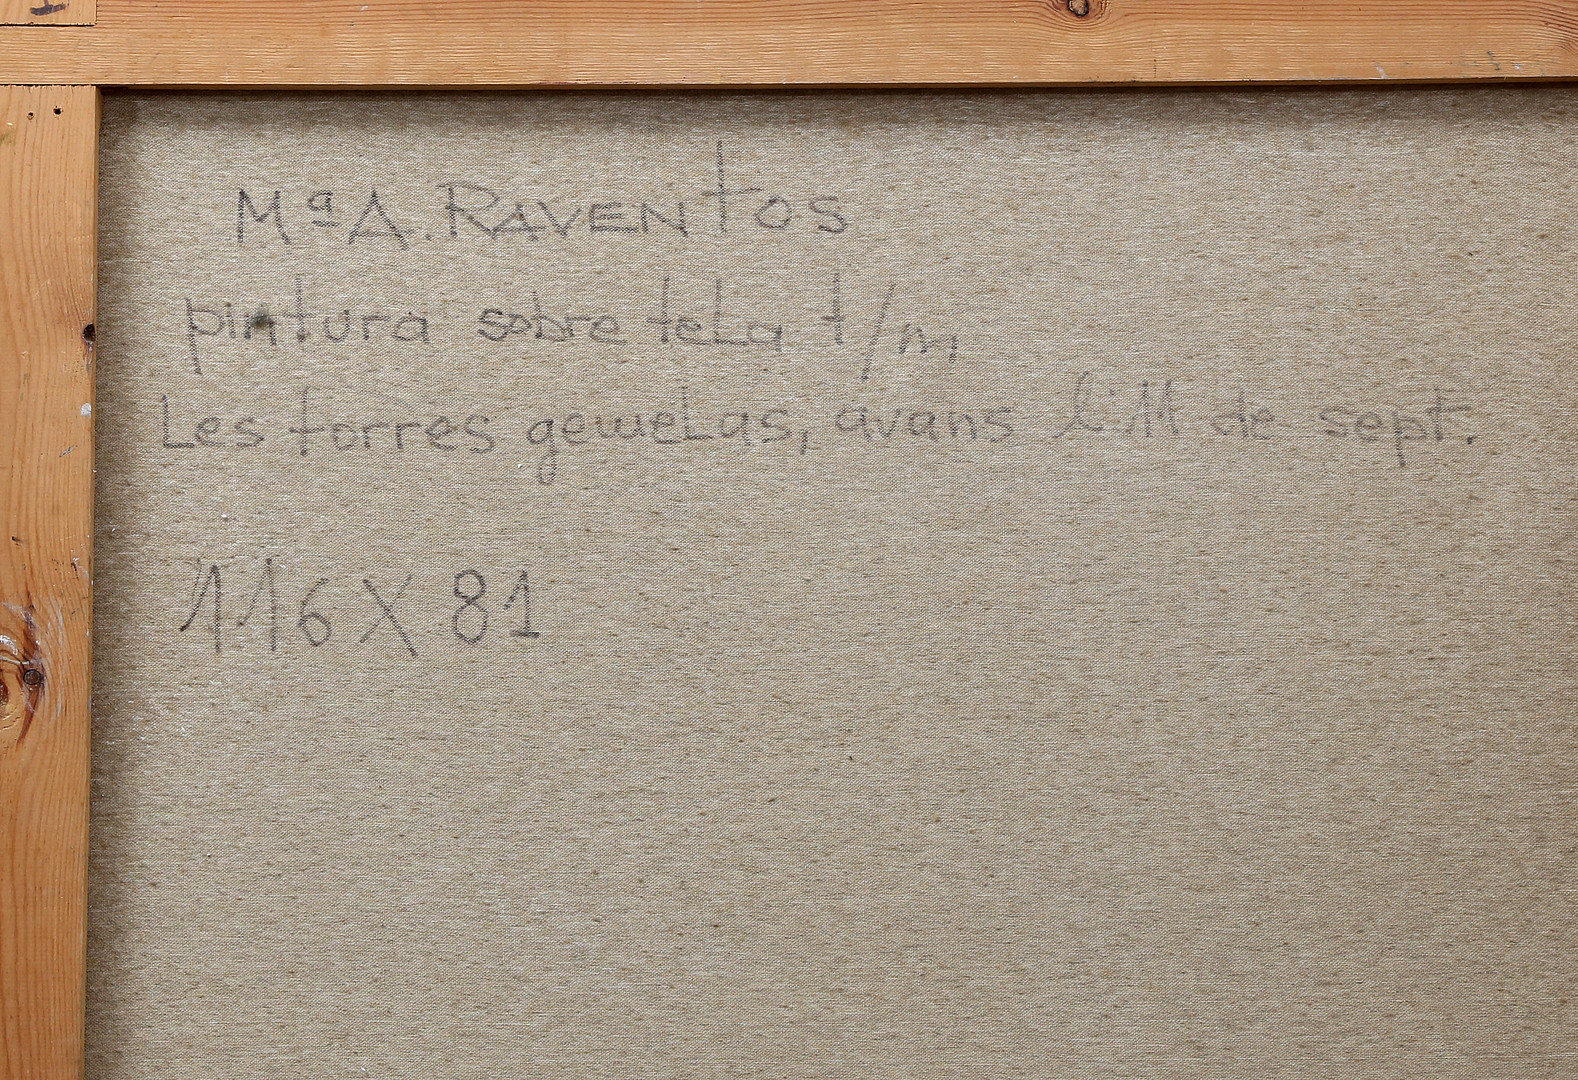 Mª A. RAVENTOS
pintura sobre tela t/m
Les torres gemelas, avans l'11 de sept.
116 X 81